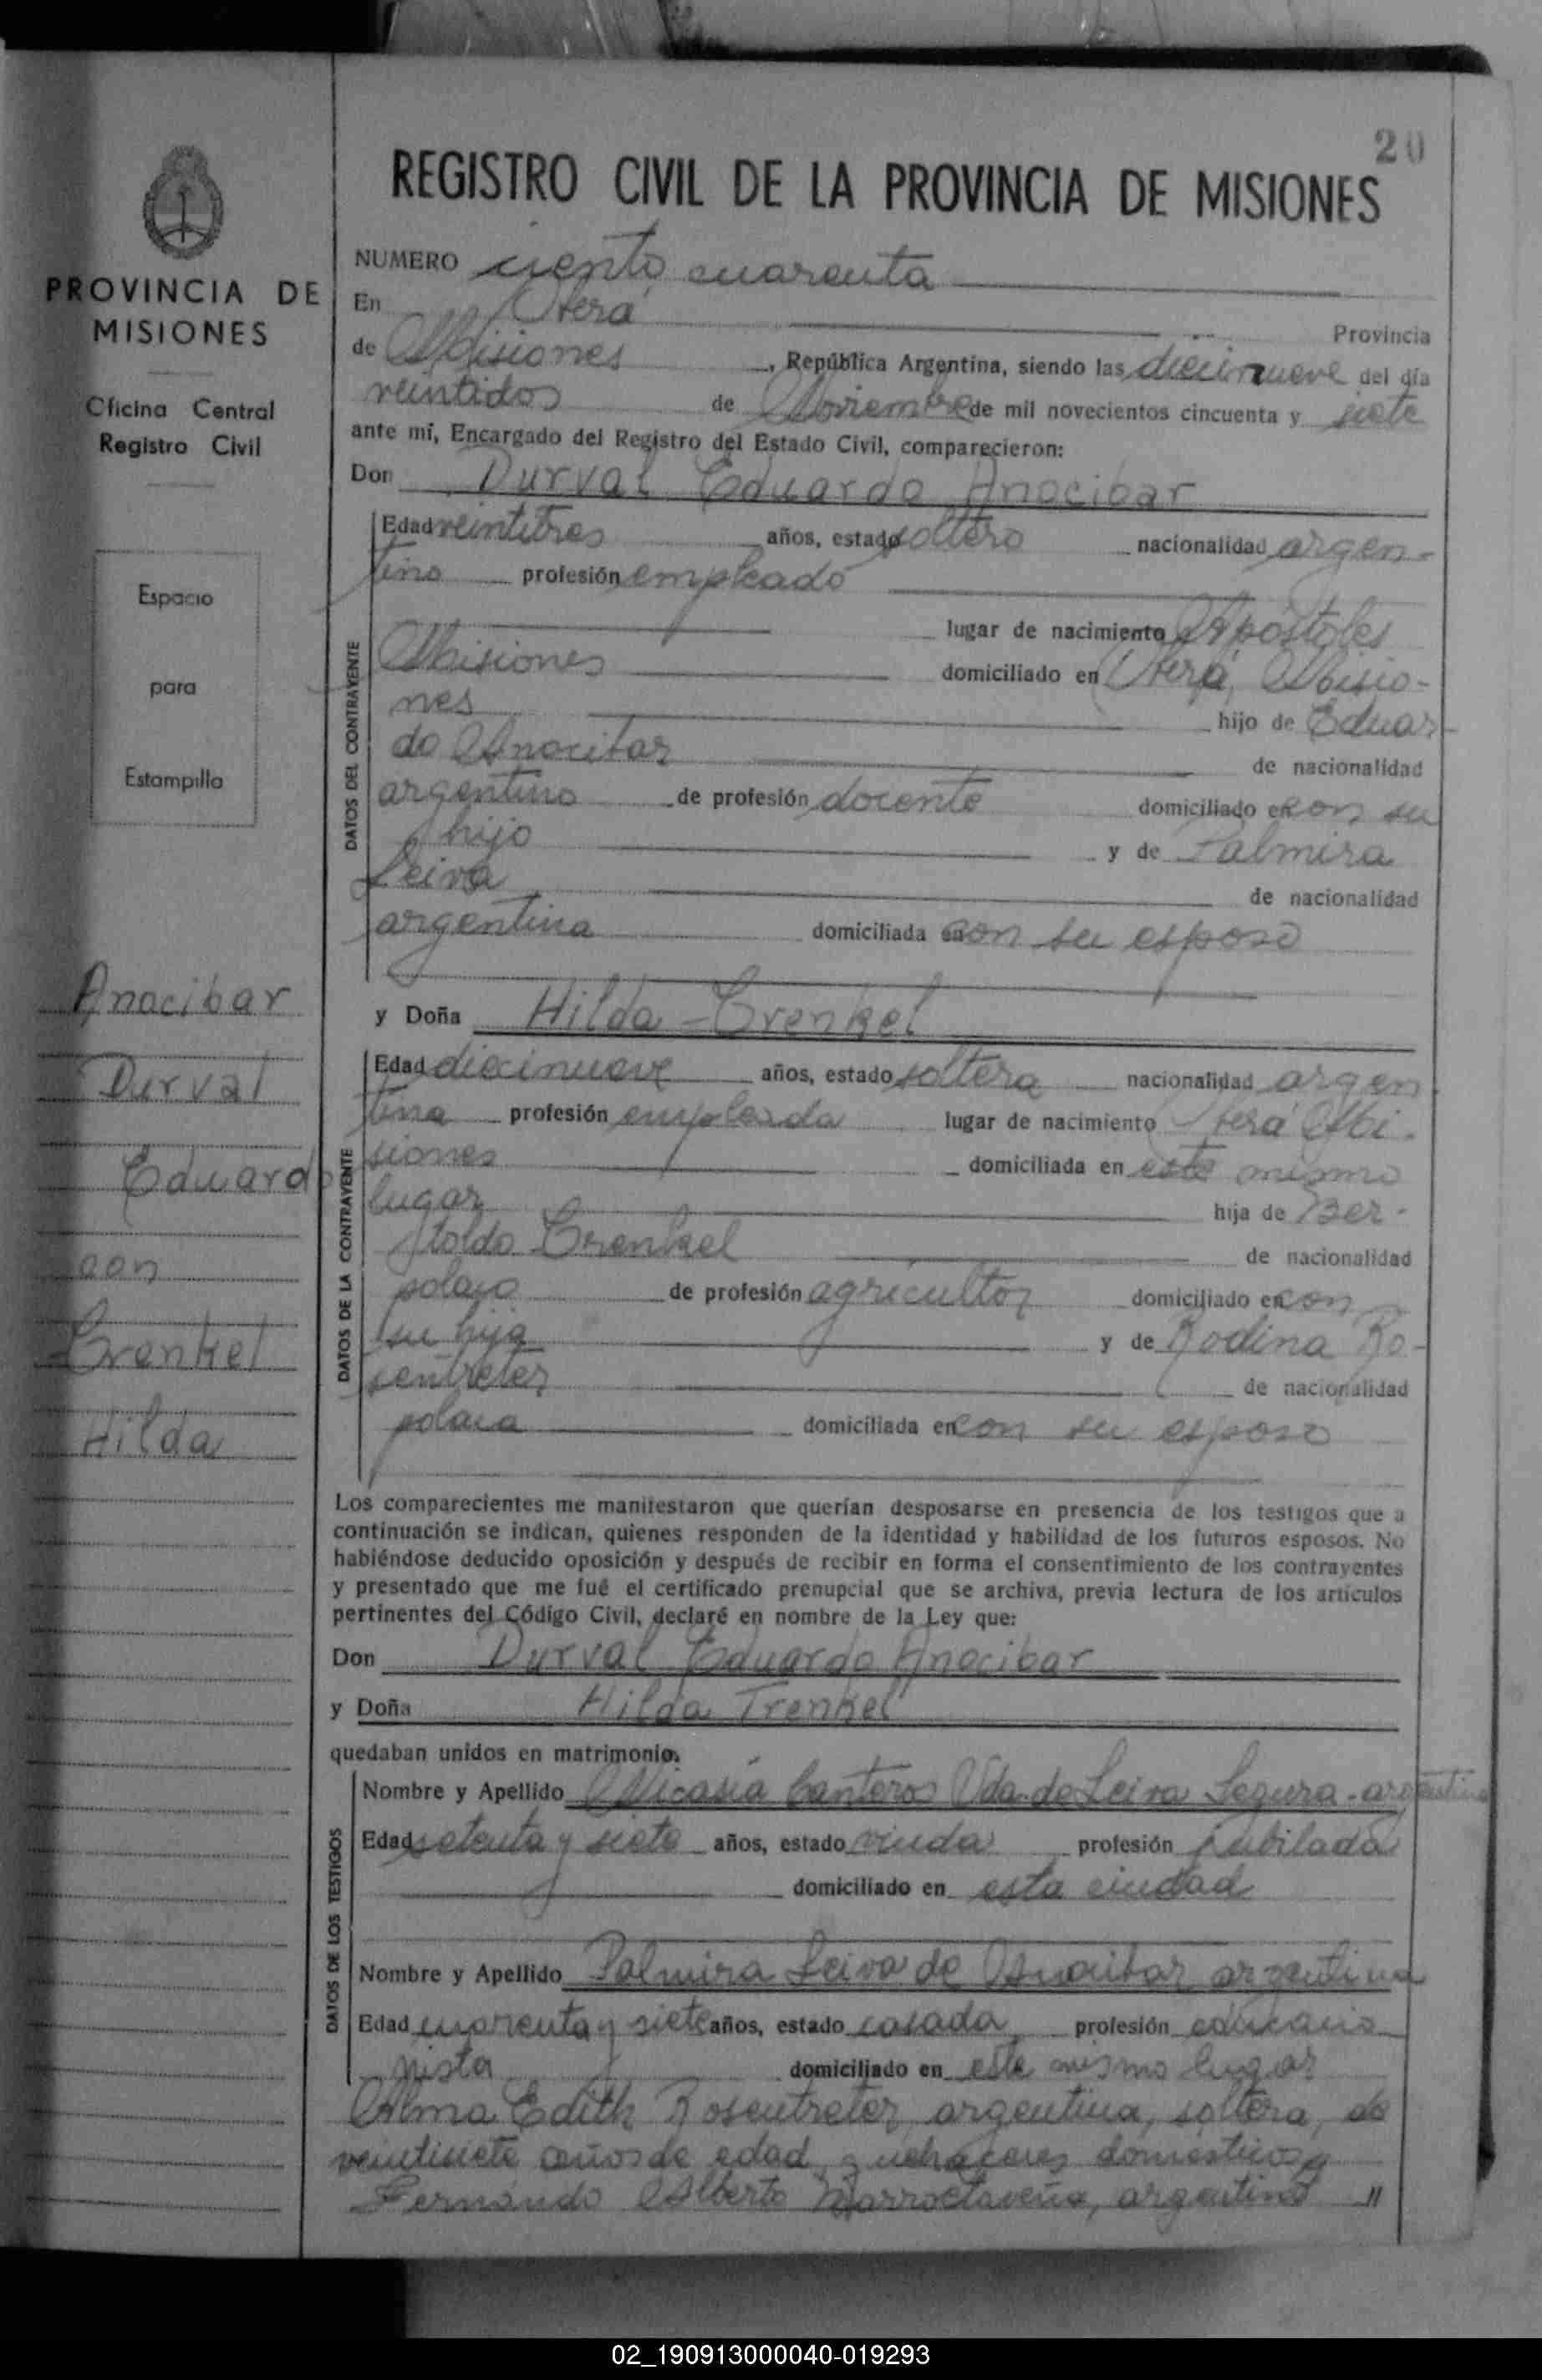 20
REGISTRO CIVIL DE LA PROVINCIA DE MISIONES
PROVINCIA DE
MISIONES
Oficina Central
Registro Civil
Espacio
para
Estampilla
Anocibar
Durval
Eduardo
con
Trenkel
Hilda
NUMERO ciento cuarenta
En Oberá Provincia
de Misiones, República Argentina, siendo las diecinueve del día
veintidos de Noviembre de mil novecientos cincuenta y siete
ante mí, Encargado del Registro del Estado Civil, comparecieron:
Don Durval Eduardo Anocibar
DATOS DEL CONTRAYENTE
Edad veintitres años, estado soltero nacionalidad argen-
tino profesión empleado
lugar de nacimiento Apóstoles
Misiones domiciliado en Oberá, Misio-
nes hijo de Eduar-
do Anocibar de nacionalidad
argentino de profesión docente domiciliado en con su
hijo y de Palmira
Leiva de nacionalidad
argentina domiciliada en con su esposo
y Doña Hilda - Trenkel
DATOS DE LA CONTRAYENTE
Edad diecinueve años, estado soltera nacionalidad argen
tina profesión empleada lugar de nacimiento Oberá Mi-
siones domiciliada en este mismo
lugar hija de Ber-
toldo Trenkel de nacionalidad
polaco de profesión agricultor domiciliado en con
su hija y de Rodina Ro-
sentreter de nacionalidad
polaca domiciliada en con su esposo
Los comparecientes me manifestaron que querían desposarse en presencia de los testigos que a
continuación se indican, quienes responden de la identidad y habilidad de los futuros esposos. No
habiéndose deducido oposición y después de recibir en forma el consentimiento de los contrayentes
y presentado que me fué el certificado prenupcial que se archiva, previa lectura de los artículos
pertinentes del Código Civil, declaré en nombre de la Ley que:
Don Durval Eduardo Anocibar
y Doña Hilda Trenkel
quedaban unidos en matrimonio.
DATOS DE LOS TESTIGOS
Nombre y Apellido Nicasia Canteros Vda. de Leiva Segura - argentina
Edad setenta y siete años, estado viuda profesión jubilada
domiciliado en esta ciudad
Nombre y Apellido Palmira Leiva de Anocibar argentina
Edad cuarenta y siete años, estado casada profesión educacio
nista domiciliado en este mismo lugar
Alma Edith Rosentreter, argentina, soltera, de
veintisiete años de edad, quehaceres domesticos y
Fernando Alberto argentino "
02_190913000040-019293